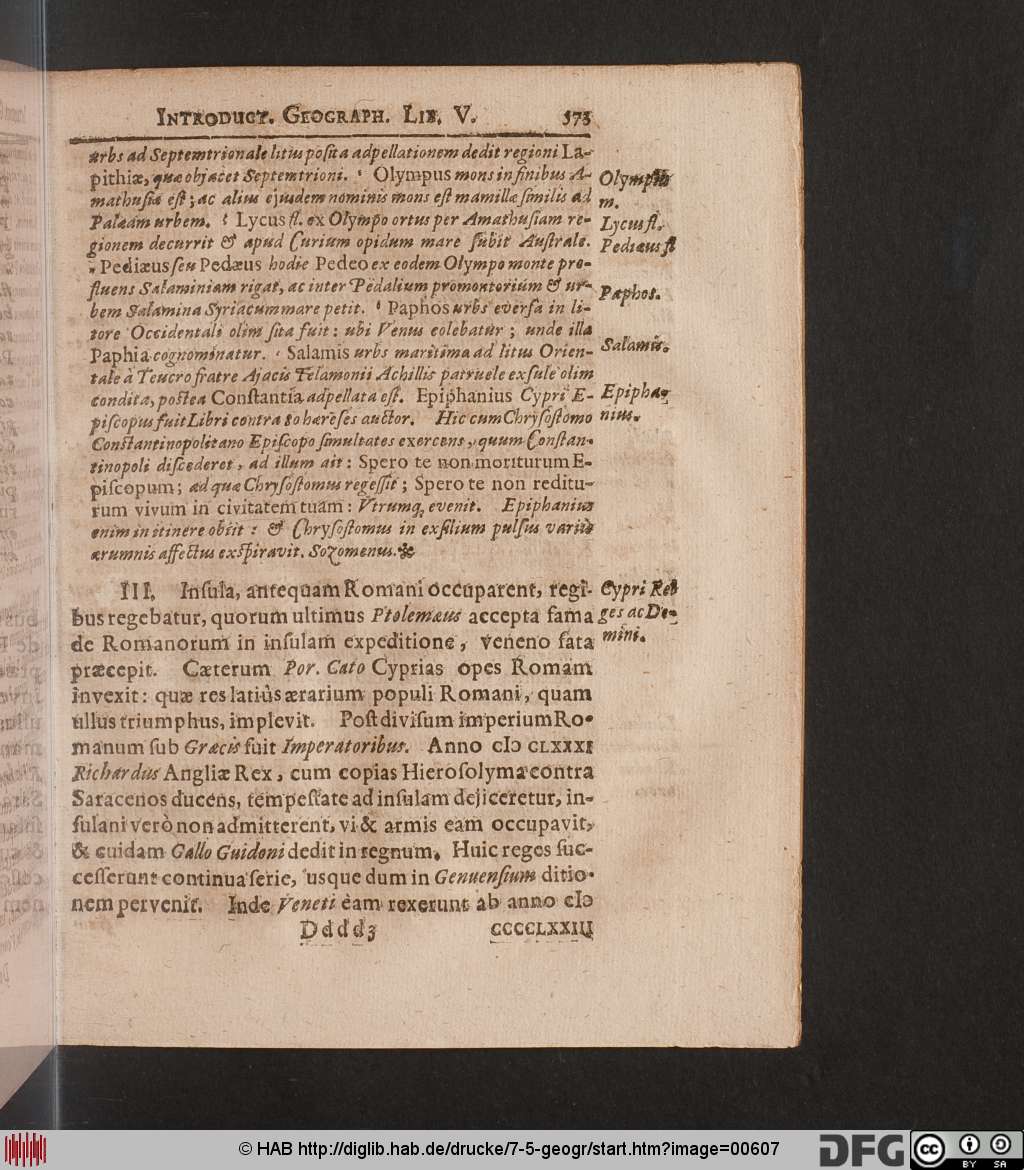 INTRODUCT. GEOGRAPH. LIB. V. 573
urbs ad Septemtrionale litus posita adpellationem dedit regioni La-
pithiæ, quæ objacet Septemtrioni. Olympus mons in finibus A-
Olympus
mathusiæ est; ac alius ejusdem nominis mons est mamillæ similis ad
m.
Palæam urbem. Lycus fl. ex Olympo ortus per Amathusiam re-
Lycus fl.
gionem decurrit & apud Curium opidum mare subit Australe.
Pediæus fl
Pediæus seu Pedæus hodie Pedeo ex eodem Olympo monte pro-
fluens Salaminiam rigat, ac inter Pedalium promontorium & ur-
Paphos.
bem Salamina Syriacum mare petit. Paphos urbs eversa in li-
tore Occidentali olim sita fuit: ubi Venus colebatur; unde illa
Paphia cognominatur. Salamis urbs maritima ad litus Orien-
Salamis.
tale à Teucro fratre Ajacis Telamonii Achillis patruele exsule olim
condita, postea Constantia adpellata est. Epiphanius Cypri E-
Epipha-
piscopus fuit Libri contra 80 hæreses auctor. Hic cum Chrysostomo
nius.
Constantinopolitano Episcopo simultates exercens, quum Constan-
tinopoli discederet, ad illum ait: Spero te non moriturum E-
piscopum; ad quæ Chrysostomus regessit; Spero te non reditu-
rum vivum in civitatem tuam: Utrumq; evenit. Epiphanius
enim in itinere obiit: & Chrysostomus in exsilium pulsus variis
ærumnis affectus exspiravit. Sozomenus.
III. Insula, antequam Romani occuparent, regi-
Cypri Re-
bus regebatur, quorum ultimus Ptolemæus accepta fama
ges ac Do-
de Romanorum in insulam expeditione, veneno fata
mini.
præcepit. Cæterum Por. Cato Cyprias opes Romam
invexit: quæ res latiùs ærarium populi Romani, quam
ullus triumphus, implevit. Post divisum imperium Ro-
manum sub Græcis fuit Imperatoribus. Anno cIↄ CLXXXI
Richardus Angliæ Rex, cum copias Hierosolyma contra
Saracenos ducens, tempestate ad insulam dejiceretur, in-
sulani verò non admitterent, vi & armis eam occupavit,
& cuidam Gallo Guidoni dedit in regnum. Huic reges suc-
cesserunt continua serie, usque dum in Genuensium ditio-
nem pervenit. Inde Veneti eam rexerunt ab anno cIↄ
Ddddd3 CCCCLXXIII
© HAB http://diglib.hab.de/drucke/7-5-geogr/start.htm?image=00607
DFG
cc BY SA